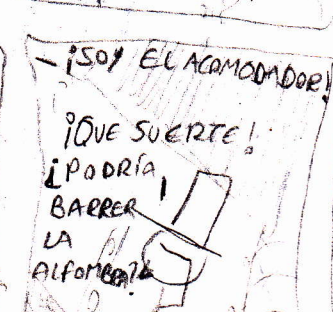 - ¡SOY EL ACOMODADOR!
¡QUE SUERTE!
¿PODRÍA
BARRER
LA
ALFOMBRA?